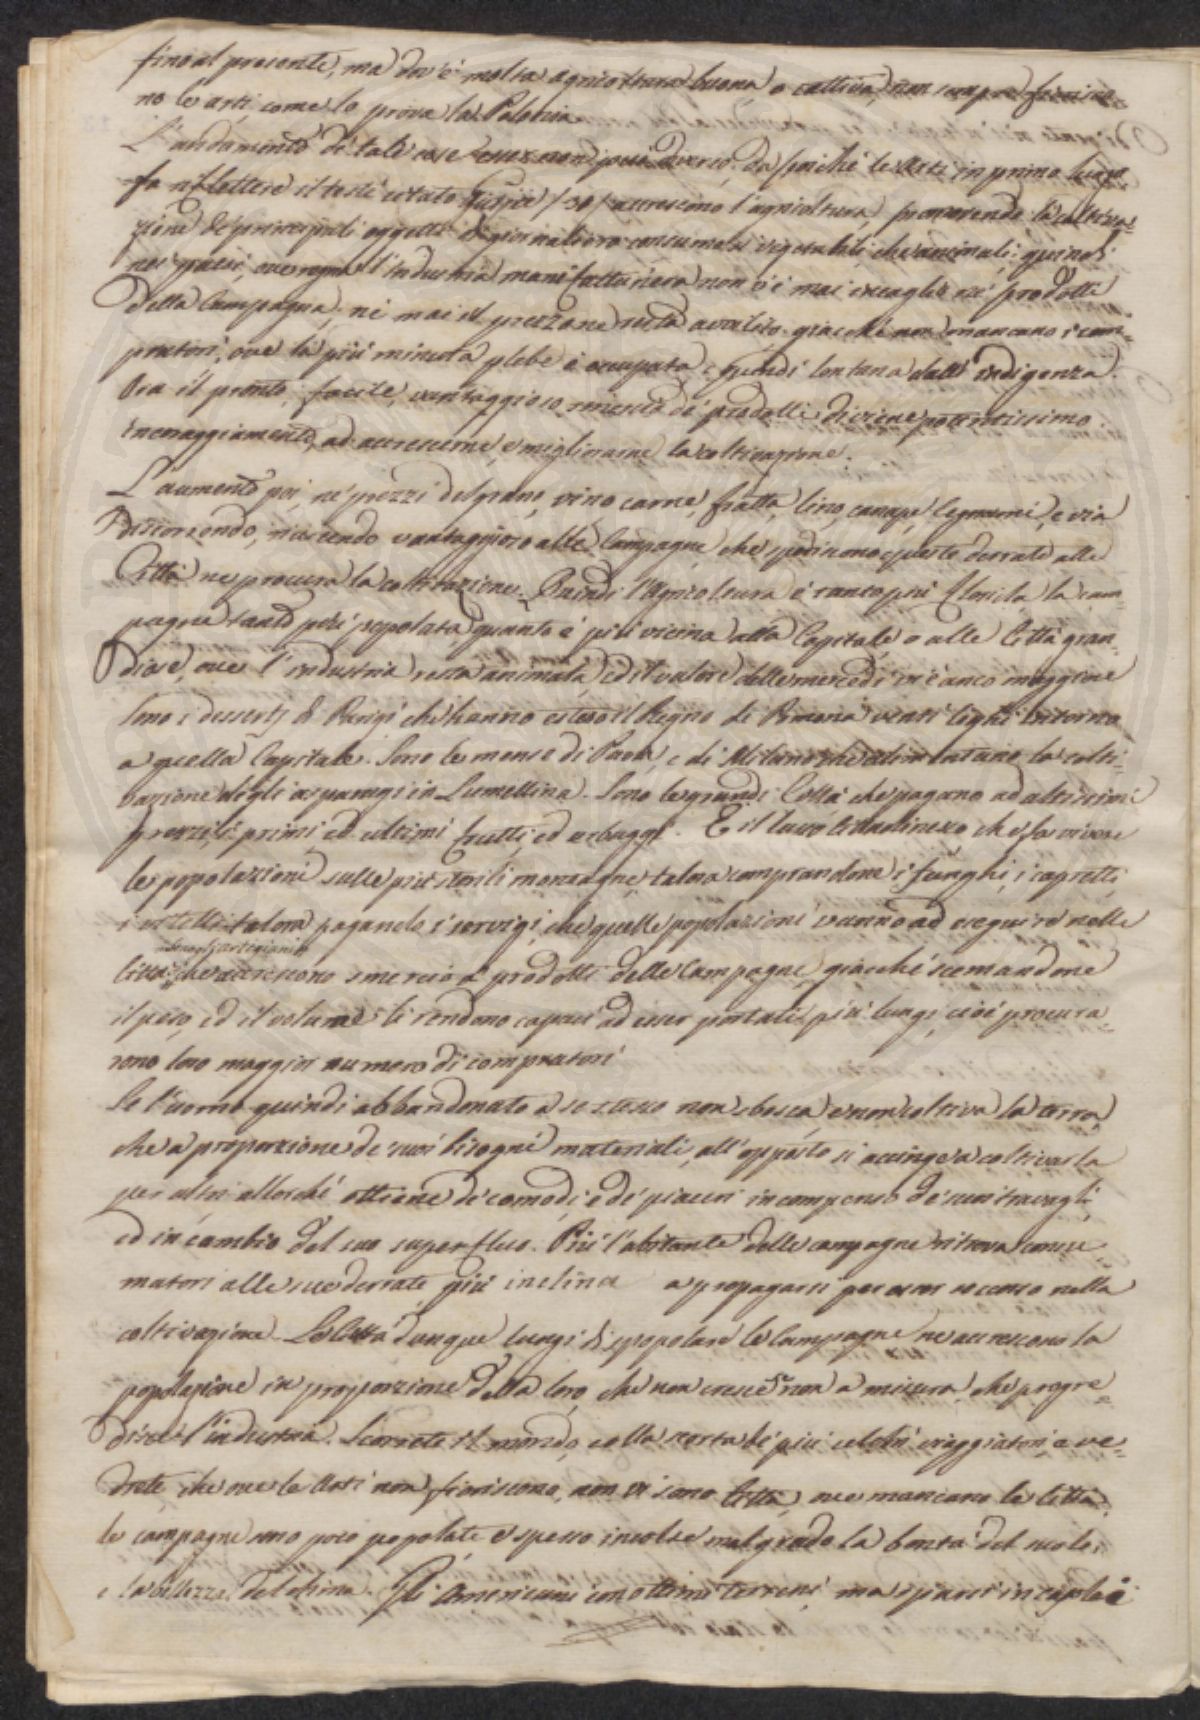 fino al presente, ma dov'è molta agricoltura buona o cattiva, non sempre fiorisco-
no le arti, come lo prova la Polonia
L'andamento di tali cose esser non può diverso: da poiché le Arti in primo luogo
fa riflettere il testé citato Gioja /30/ accrescono l'agricoltura, promovendo la coltiva-
zione de' principali oggetti di giornaliero consumo sì vegetabili, che animali: quindi
nei paesi, ove regna l'industria manifatturiera non v'è mai incaglio ne' prodotti
della Campagna, né mai il prezzo ne resta avvilito, giacché non mancano i com-
pratori, ove la più minuta plebe è occupata, e quindi lontana dall'indigenza.
Ora il pronto, facile, vantaggioso smercio de' prodotti diviene potentissimo
incoraggiamento ad accrescerne, e migliorarne la coltivazione.
L'aumento poi, ne' prezzi del grano, vino carne, frutta, lino, canape, legnami, e via
discorrendo, riuscendo vantaggioso alle Campagne, che spediscono queste derrate alle
Città ne procura la coltivazione. Quindi l'Agricoltura è tanto più florida la cam-
pagna tanto più popolata, quanto è più vicina alla Capitale, o alle Città gran-
diose, ove l'industria resta animata, ed il valore delle mercedi vi è anco maggiore
Sono i desserts di Parigi che hanno esteso il Regno di Pomona venti leghe intorno
a quella Capitale. Sono le mense di Pavia, e di Milano che alimentano la colti-
vazione degli asparagi in Lumellina. Sono le grandi Città che pagano ad altissimi
prezzi, i primi, ed ultimi frutti, ed erbaggi. E il lusso cittadinesco che fa vivere
le popolazioni sulle più sterili montagne, talora comprandone i funghi, i capretti,
i vitelli, talora pagando i servigi, che quelle popolazioni vanno ad eseguire nelle
sono gli artigiani
Città; che accrescono smercio a' prodotti delle Campagne, giacché scemandone
il peso, ed il volume li rendono capaci ad esser portati più lungi, cioè procura-
rono loro maggior numero di compratori
Se l'uomo quindi abbandonato a se stesso non sbosca, e non coltiva la terra,
che a proporzione de' suoi bisogni materiali, all'opposto si accinge a coltivarla
per altri allorché ottiene de' comodi, e de' piaceri in compenso de' suoi travagli,
ed in cambio del suo superfluo. Più l'abitante delle campagne ritrova consu-
matori alle sue derrate più inclina a propagarsi per aver soccorso nella
coltivazione. Le Città dunque lungi di spopolare le Campagne ne accrescono la
popolazione in proporzione della loro, che non cresce se non a misura, che progre-
disce l'industria. Scorrete il mondo, colla scorta de' più celebri viaggiatori, e ve-
drete, che ove le Arti non fioriscono, non vi sono Città, ove mancano le Città,
le campagne sono poco popolate e spesso incolte malgrado la bontà del suolo,
e la bellezza del clima. Gli Americani con ottimi terreni, ma sparsi in